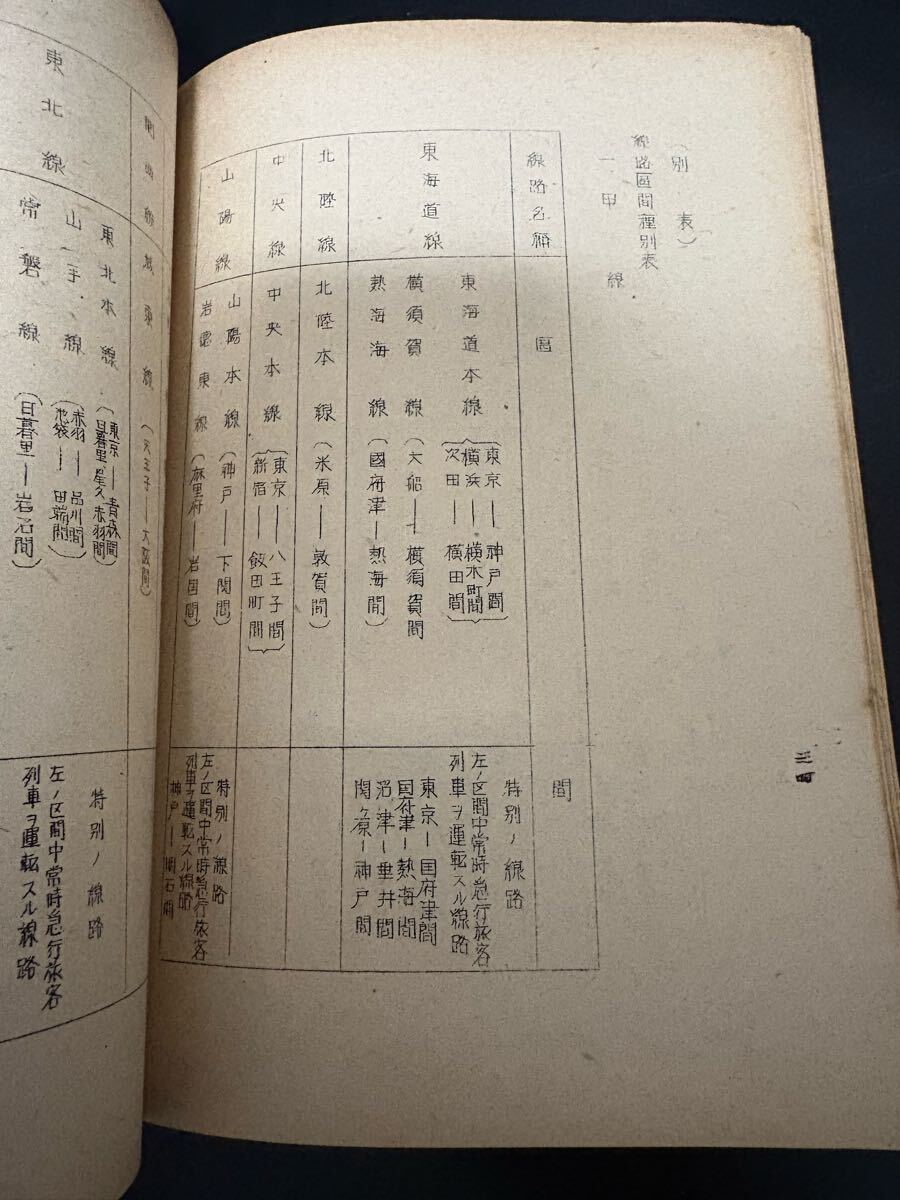 （別表）
線路區間種別表
一甲線
線路名稱
區
間
東海道線
東海道本線
東京―神戸間
横浜―桜木町間
吹田―横田間
横須賀線
（大船―横須賀間
熱海線
（國府津―熱海間）
特別ノ線路
左ノ区間中常時急行旅客
列車ヲ運転スル線路
東京―国府津間
国府津―熱海間
沼津―垂井間
関ヶ原―神戸間
北陸線
北陸本線
（米原―敦賀間）
中央線
中央本線
東京―八王子間
新宿―飯田町間
山陽線
山陽本線
（神戸―下関間）
岩徳東線
（麻里府―岩国間）
特別ノ線路
左ノ区間中常時急行旅客
列車ヲ運転スル線路
神戸―明石間
三四
関西線
城東線
（天王寺―大阪間）
東北線
東北本線
東京―青森間
日暮里、尾久、赤羽間
山手線
赤羽―品川間
池袋―田端間
常磐線
（日暮里―岩沼間）
特別ノ線路
左ノ区間中常時急行旅客
列車ヲ運転スル線路